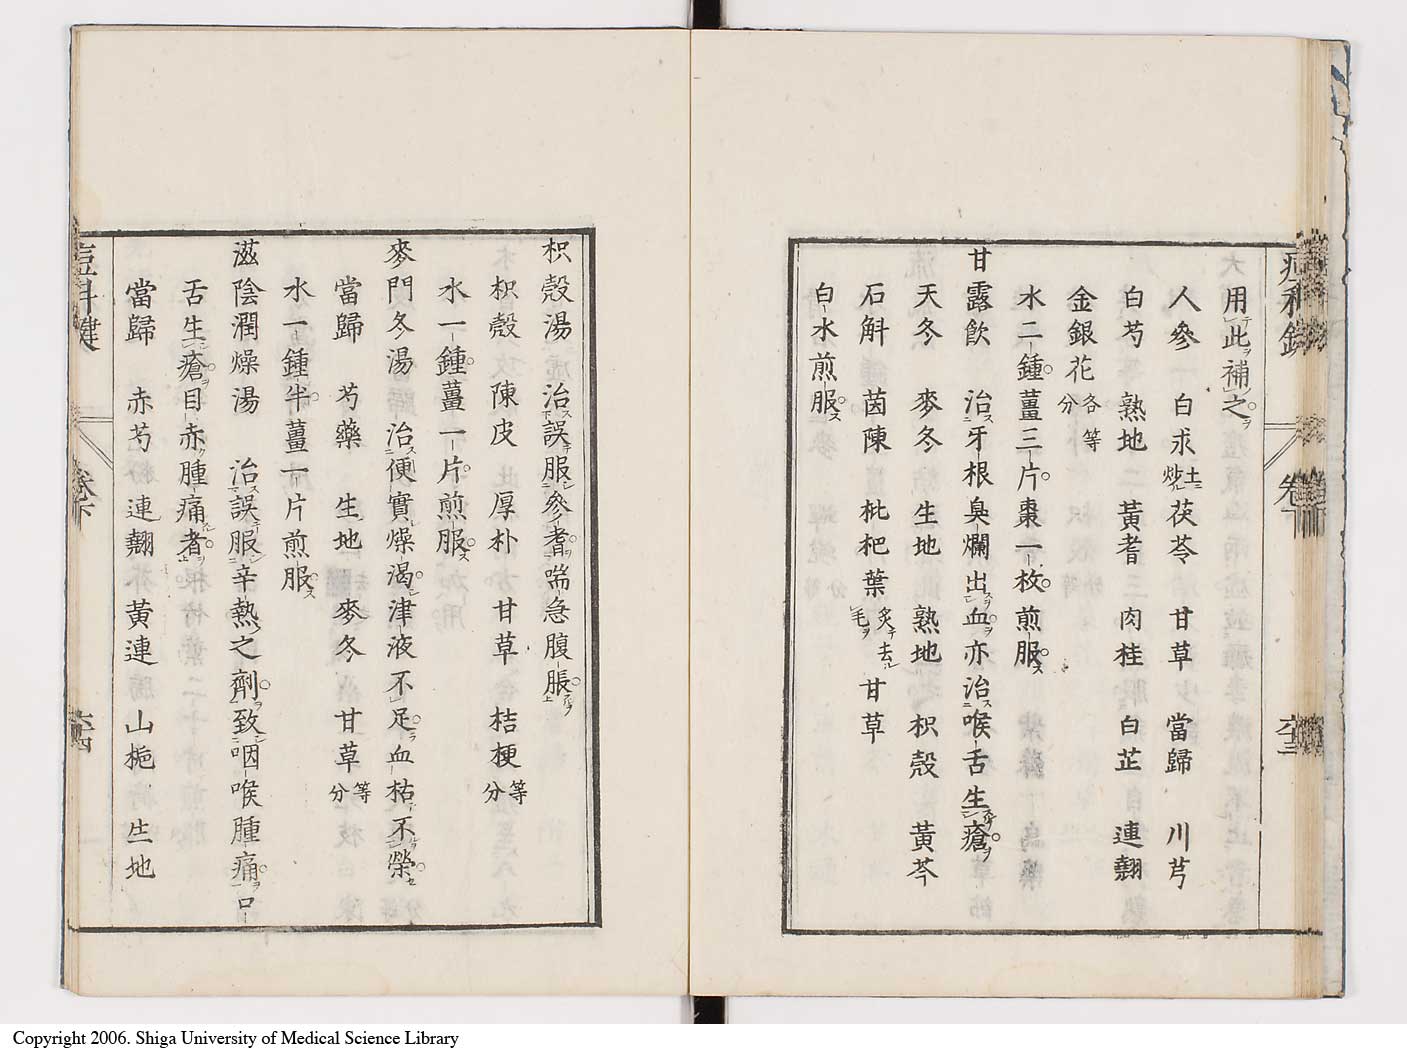 用此補之
人參 白朮 土炒 茯苓 甘草 當歸 川芎
白芍 熟地 黃耆 肉桂 白芷 連翹
金銀花 各等分
水二鍾薑三片棗一枚煎服
甘露飲 治牙根臭爛出血亦治喉舌生瘡
天冬 麥冬 生地 熟地 枳殼 黃芩
石斛 茵陳 枇杷葉 炙去毛 甘草
白水煎服
卷下
六十三
枳殼湯 治誤服參耆喘急腹脹
枳殼 陳皮 厚朴 甘草 桔梗 等分
水一鍾薑一片煎服
麥門冬湯 治便實燥渴津液不足血枯不榮
當歸 芍藥 生地 麥冬 甘草 等分
水一鍾半薑一片煎服
滋陰潤燥湯 治誤服辛熱之劑致咽喉腫痛口
舌生瘡目赤腫痛者
當歸 赤芍 連翹 黃連 山梔 生地
卷下
六十四
Copyright 2006. Shiga University of Medical Science Library